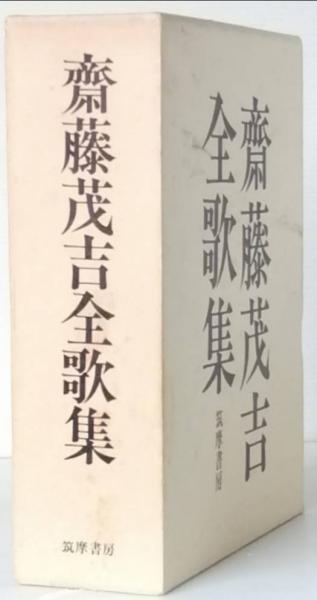 齋藤茂吉全歌集
筑摩書房
齋藤茂吉
全歌集
筑摩書房